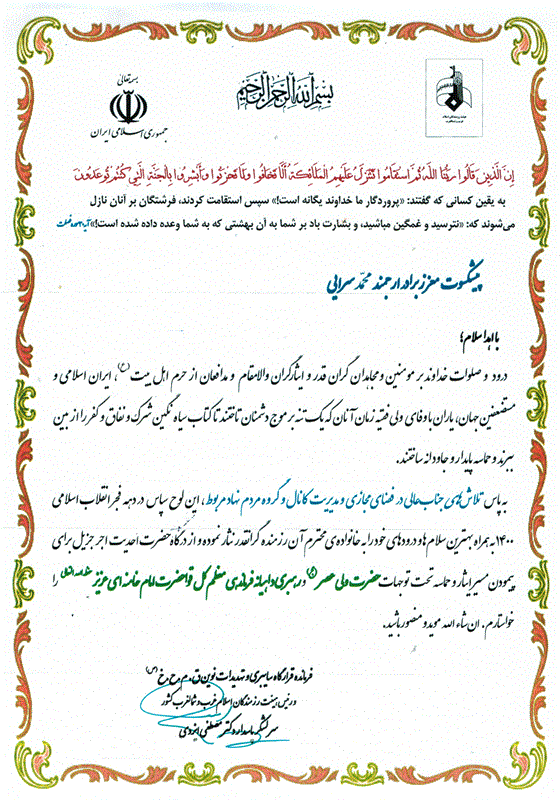 بسمه تعالی
جمهوری اسلامی ایران
بسم الله الرحمن الرحیم
إِنَّ الَّذِينَ قَالُوا رَبُّنَا اللَّهُ ثُمَّ اسْتَقَامُوا تَتَنَزَّلُ عَلَيْهِمُ الْمَلَائِكَةُ أَلَّا تَخَافُوا وَلَا تَحْزَنُوا وَأَبْشِرُوا بِالْجَنَّةِ الَّتِي كُنتُمْ تُوعَدُونَ
به یقین کسانی که گفتند: «پروردگار ما خداوند یگانه است!» سپس استقامت کردند، فرشتگان بر آنان نازل
می‌شوند که: «نترسید و غمگین مباشید، و بشارت باد بر شما به آن بهشتی که به شما وعده داده شده است!» آیه ۳۰ سوره فصلت
پیشکسوت معزز برادر ارجمند محمد سرایی
با اهدا سلام؛
درود و صلوات خداوند بر مومنین و مجاهدان گران قدر و ایثارگران والامقام و مدافعان از حرم اهل بیت (ع)، ایران اسلامی و
مستضعفین جهان، یاران باوفای ولی فقیه زمان آنان که یک تنه بر موج دشمنان تاختند تا کتاب سیاه ننگین شرک و نفاق و کفر را از بین
ببرند و حماسه پایدار و جاودانه ساختند.
به پاس تلاش‌های جنابعالی در فضای مجازی و مدیریت کانال و گروه مردم نهاد مربوط، این لوح سپاس در دهه فجر انقلاب اسلامی
۱۴۰۰ به همراه بهترین سلام ها و درودهای خود را به خانواده‌ی محترم آن رزمنده گرانقدر نثار نموده و از درگاه حضرت احدیت اجر جزیل برای
پیمودن مسیر ایثار و حماسه تحت توجهات حضرت ولی عصر (عج) و رهبری داهیانه فرماندهی معظم کل قوا حضرت امام خامنه ای عزیز را
خواستارم. ان شاء الله موید و منصور باشید.
فرمانده قرارگاه سایبری و تهدیدات نوین ق.م.ح.خ (ص)
و رئیس هیئت رزمندگان اسلام غرب و شمالغرب کشور
سرلشکر پاسدار دکتر مصطفی ایزدی